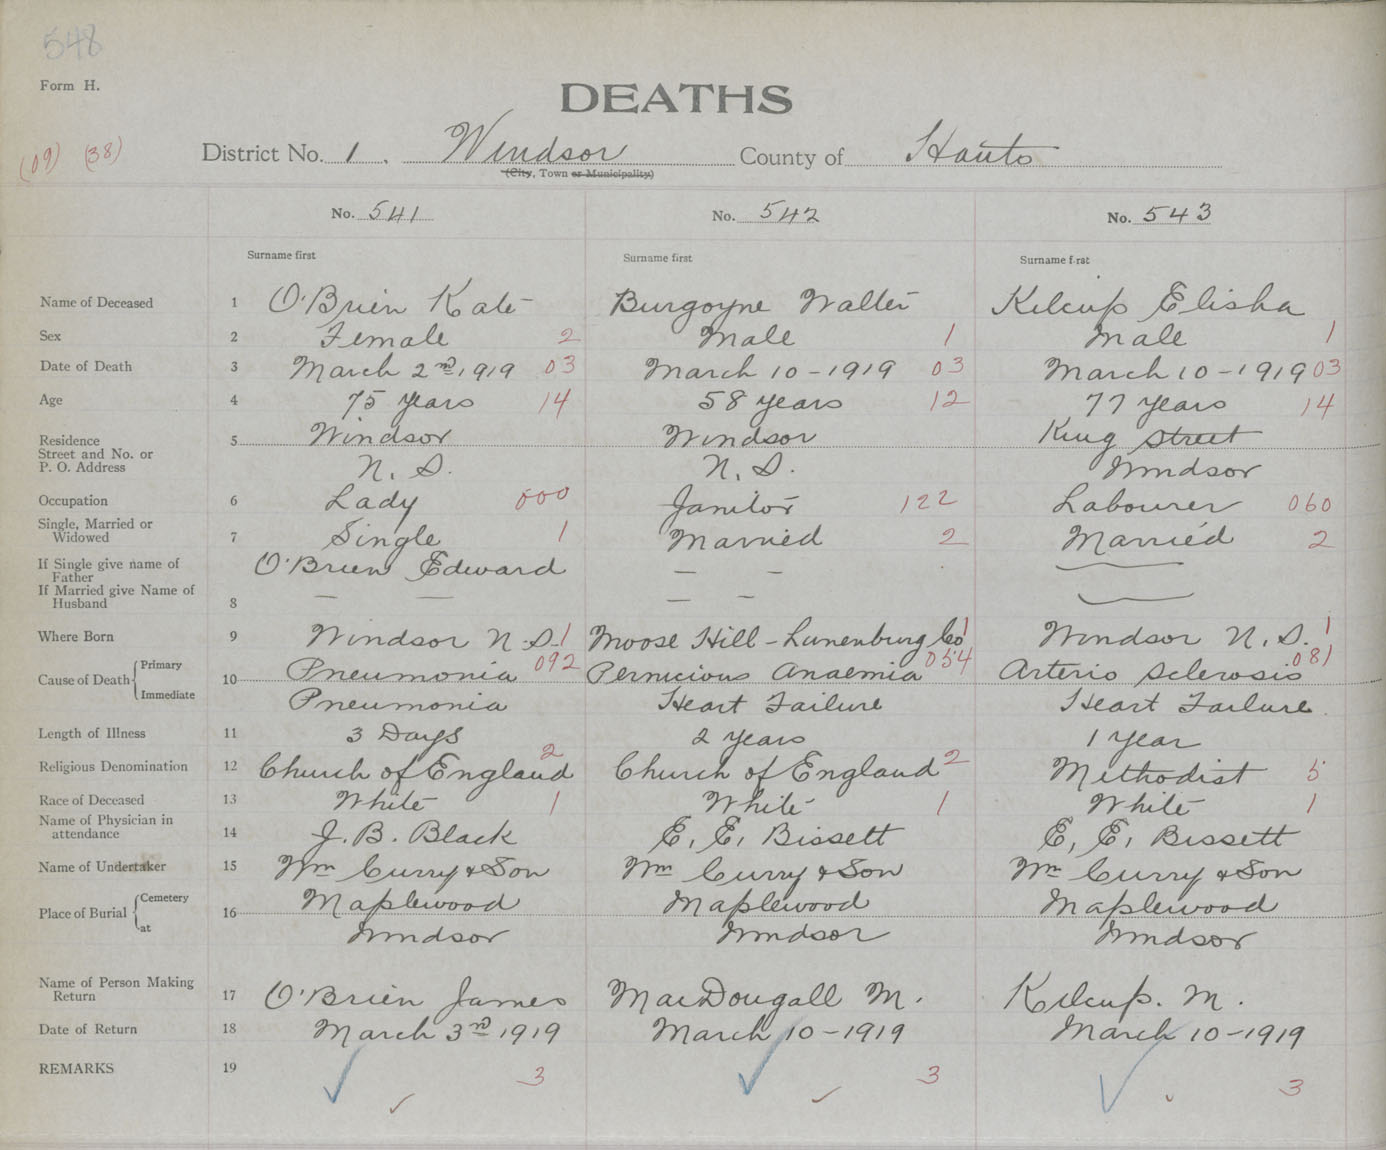 548
Form H.
DEATHS
(09) (38)
District No. 1. Windsor County of Hants
(City, Town or Municipality)
No. 541 No. 542 No. 543
Surname first Surname first Surname first
Name of Deceased 1 O'Brien Kate Burgoyne Walter Kilcup Elisha
Sex 2 Female 2 Male 1 Male 1
Date of Death 3 March 2nd 1919 03 March 10-1919 03 March 10-1919 03
Age 4 75 years 14 58 years 12 77 years 14
Residence 5 Windsor Windsor King Street
Street and No. or
P. O. Address N. S. N. S. Windsor
Occupation 6 Lady 000 Janitor 122 Labourer 060
Single, Married or
Widowed 7 Single 1 Married 2 Married 2
If Single give name of
Father O'Brien Edward — —
If Married give Name of
Husband 8 — — — —
Where Born 9 Windsor N.S. 1 Moose Hill - Lunenburg Co 1 Windsor N.S. 1
Cause of Death Primary 10 Pneumonia 092 Pernicious Anaemia 054 Arterio Sclerosis 081
Immediate Pneumonia Heart Failure Heart Failure
Length of Illness 11 3 Days 2 years 1 year
Religious Denomination 12 Church of England 2 Church of England 2 Methodist 5
Race of Deceased 13 White 1 White 1 White 1
Name of Physician in
attendance 14 J. B. Black E. E. Bissett E. E. Bissett
Name of Undertaker 15 Wm Curry & Son Wm Curry & Son Wm Curry & Son
Place of Burial Cemetery 16 Maplewood Maplewood Maplewood
at Windsor Windsor Windsor
Name of Person Making
Return 17 O'Brien James MacDougall M. Kilcup. M.
Date of Return 18 March 3rd 1919 March 10-1919 March 10-1919
REMARKS 19 3 3 3